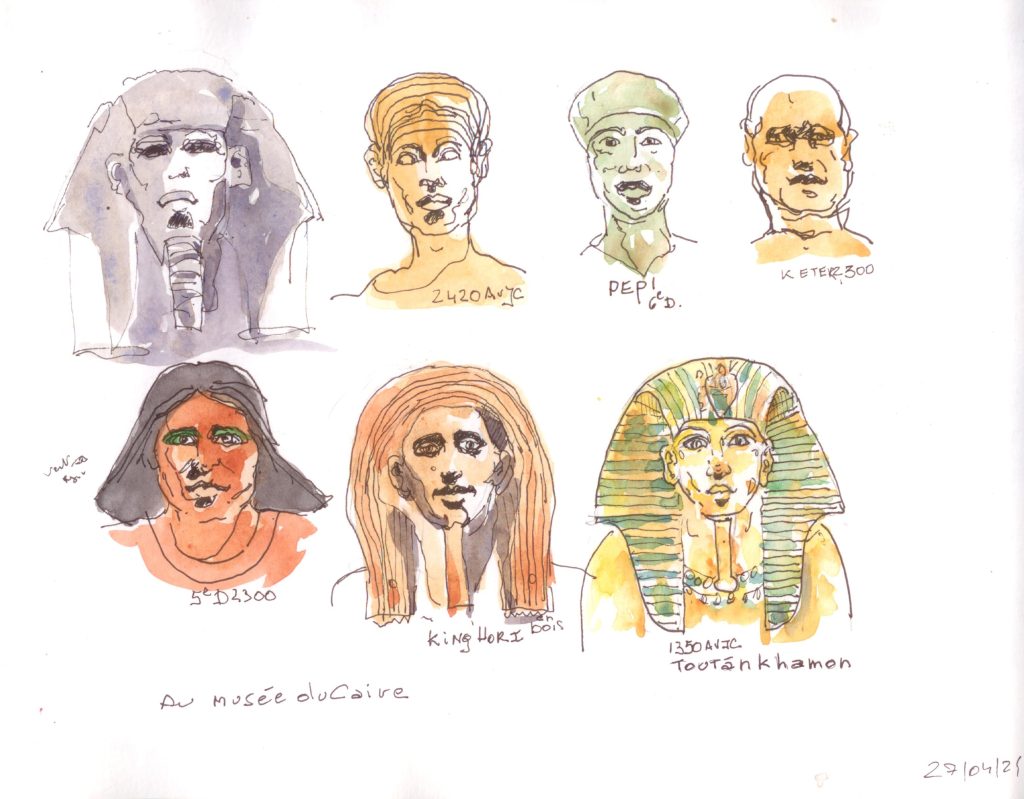 2420 AVJC
PEPI
6e D.
5e D 2300
KING HORI
en bois
1350 AVJC
TOUTánkhamon
AU MUSÉE du Caire